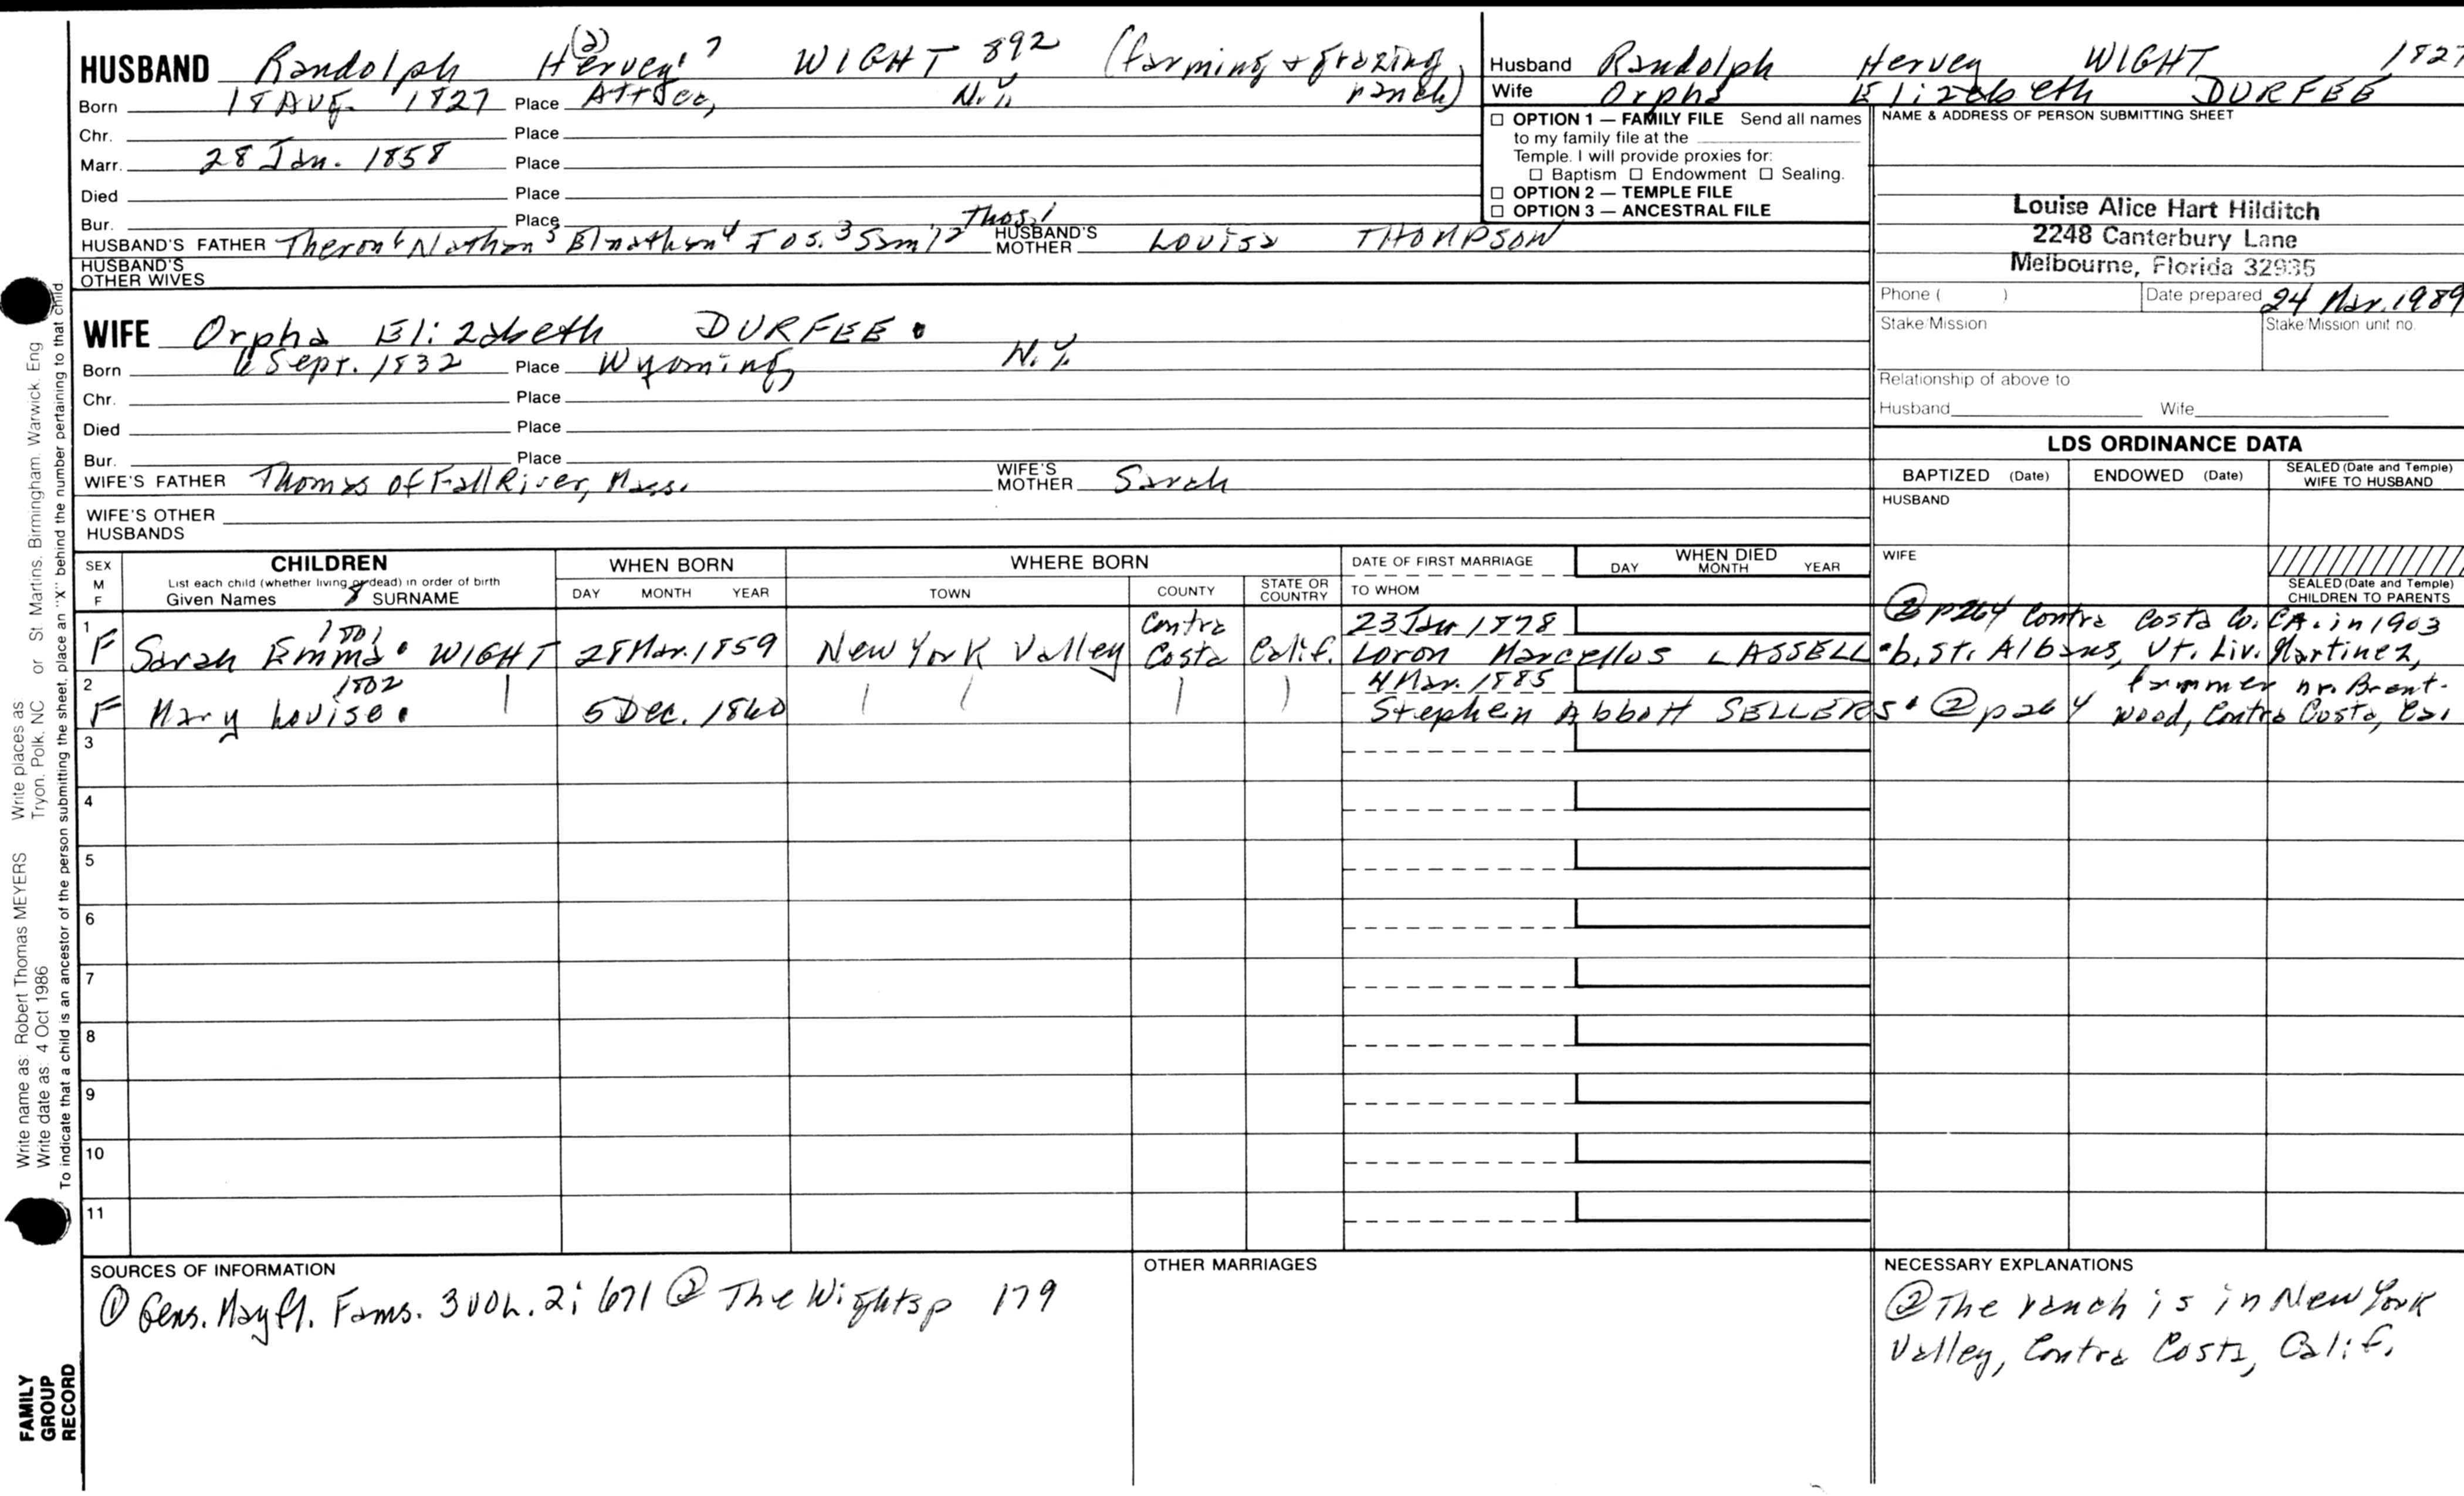 HUSBAND Randolph Hervey⁷ (2) WIGHT 892 (farming & grazing ranch)
Born 18 Aug. 1827 Place Attica, N.Y.
Chr. Place
Marr. 28 Jan. 1858 Place
Died Place
Bur. Place
HUSBAND'S FATHER Theron⁶ Nathan⁵ Elnathan⁴ Jos.³ Sam'l² Thos.¹ HUSBAND'S MOTHER Louisa THOMPSON
HUSBAND'S OTHER WIVES
WIFE Orpha Elizabeth DURFEE •
Born Sept. 1832 Place Wyoming, N.Y.
Chr. Place
Died Place
Bur. Place
WIFE'S FATHER Thomas of Fall River, Mass. WIFE'S MOTHER Sarah
WIFE'S OTHER HUSBANDS
Husband Randolph Hervey WIGHT 1827
Wife Orpha Elizabeth DURFEE
☐ OPTION 1 — FAMILY FILE Send all names
to my family file at the
Temple. I will provide proxies for:
☐ Baptism ☐ Endowment ☐ Sealing.
☐ OPTION 2 — TEMPLE FILE
☐ OPTION 3 — ANCESTRAL FILE
NAME & ADDRESS OF PERSON SUBMITTING SHEET
Louise Alice Hart Hilditch
2248 Canterbury Lane
Melbourne, Florida 32935
Phone ( ) Date prepared 24 Mar. 1989
Stake/Mission Stake/Mission unit no.
Relationship of above to
Husband Wife
LDS ORDINANCE DATA
BAPTIZED (Date) ENDOWED (Date) SEALED (Date and Temple) WIFE TO HUSBAND
HUSBAND
WIFE
SEALED (Date and Temple) CHILDREN TO PARENTS
SEX M F CHILDREN WHEN BORN WHERE BORN DATE OF FIRST MARRIAGE WHEN DIED
List each child (whether living or dead) in order of birth
Given Names 8 SURNAME DAY MONTH YEAR TOWN COUNTY STATE OR COUNTRY TO WHOM DAY MONTH YEAR
1 F Sarah Emma • 1801 WIGHT 28 Mar. 1859 New York Valley Contra Costa Calif. 23 Jan 1878
Loron Marcellus LASSELL • b. St. Albans, Vt. Liv. Martinez,
② p264 Contra Costa Co. CA. in 1903
2 F Mary Louise • 1802 5 Dec. 1860 4 Mar. 1885
Stephen Abbott SELLERS • ② p264 farmer nr. Brent-
wood, Contra Costa, Cal
3
4
5
6
7
8
9
10
11
SOURCES OF INFORMATION
① Gens. Mayfl. Fams. 3 VOL. 2: 671 ② The Wights p 179
OTHER MARRIAGES
NECESSARY EXPLANATIONS
② The ranch is in New York
Valley, Contra Costa, Calif.
Write name as: Robert Thomas MEYERS Write places as: Tryon, Polk, NC or St Martins, Birmingham, Warwick, Eng
Write date as: 4 Oct 1986
To indicate that a child is an ancestor of the person submitting the sheet, place an "X" behind the number pertaining to that child.
FAMILY
GROUP
RECORD